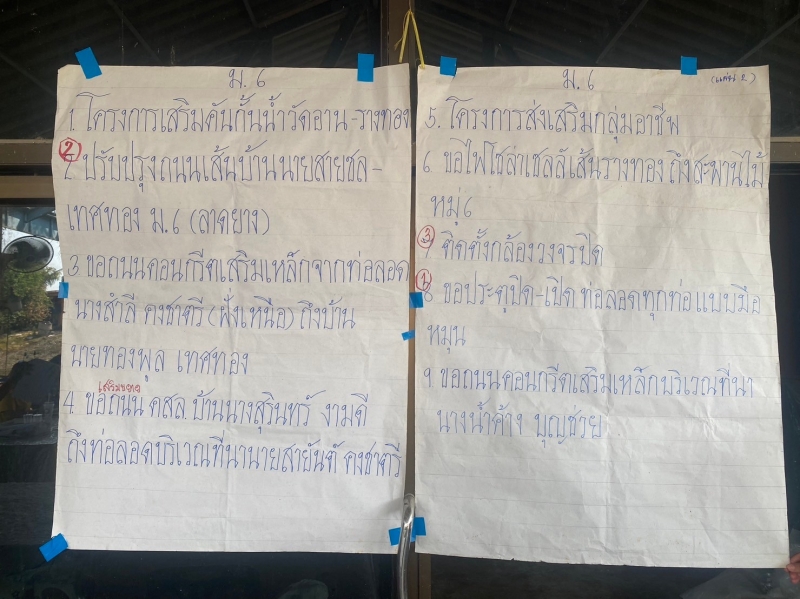 ม.6
1. โครงการเสริมคันกั้นน้ำวัดอาน-รางทอง
②
2 ปรับปรุงถนนเส้นบ้านนายสายชล-
เทศทอง ม.6 (ลาดยาง)
3 ขอถนนคอนกรีตเสริมเหล็กจากท่อลอด
นางสำลี คงชาตรี (ฝั่งเหนือ) ถึงบ้าน
นายทองพูล เทศทอง
เสริมขยาย
4. ขอถนน คสล. บ้านนางสุรินทร์ งามดี
ถึงท่อลอดบริเวณที่นานายสายันต์ คงชาตรี
ม.6 (แผ่น 2)
5. โครงการส่งเสริมกลุ่มอาชีพ
6 ขอไฟโซล่าเซลล์เส้นรางทอง ถึงสะพานไม้
หมู่6
③
7 ติดตั้งกล้องวงจรปิด
①
8 ขอประตูปิด-เปิด ท่อลอดทุกท่อแบบมือ
หมุน
9. ขอถนนคอนกรีตเสริมเหล็กบริเวณที่นา
นางน้ำค้าง บุญช่วย